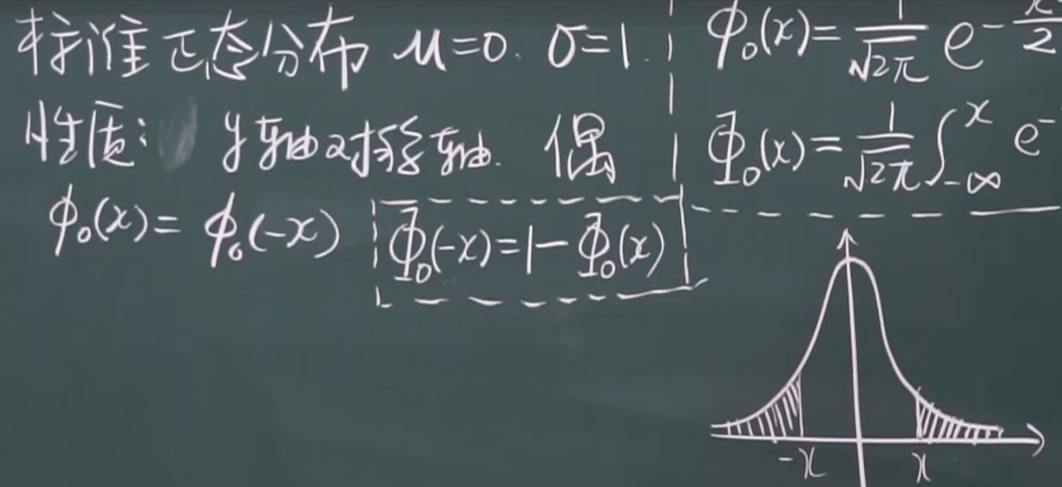 标准正态分布 μ=0. σ=1.
性质: y轴对称轴. 偶
ϕ₀(x)=ϕ₀(-x) Φ₀(-x)=1-Φ₀(x)
ϕ₀(x)=1/√2π e^-x/2
Φ₀(x)=1/√2π ∫_-∞^x e^-
-x x